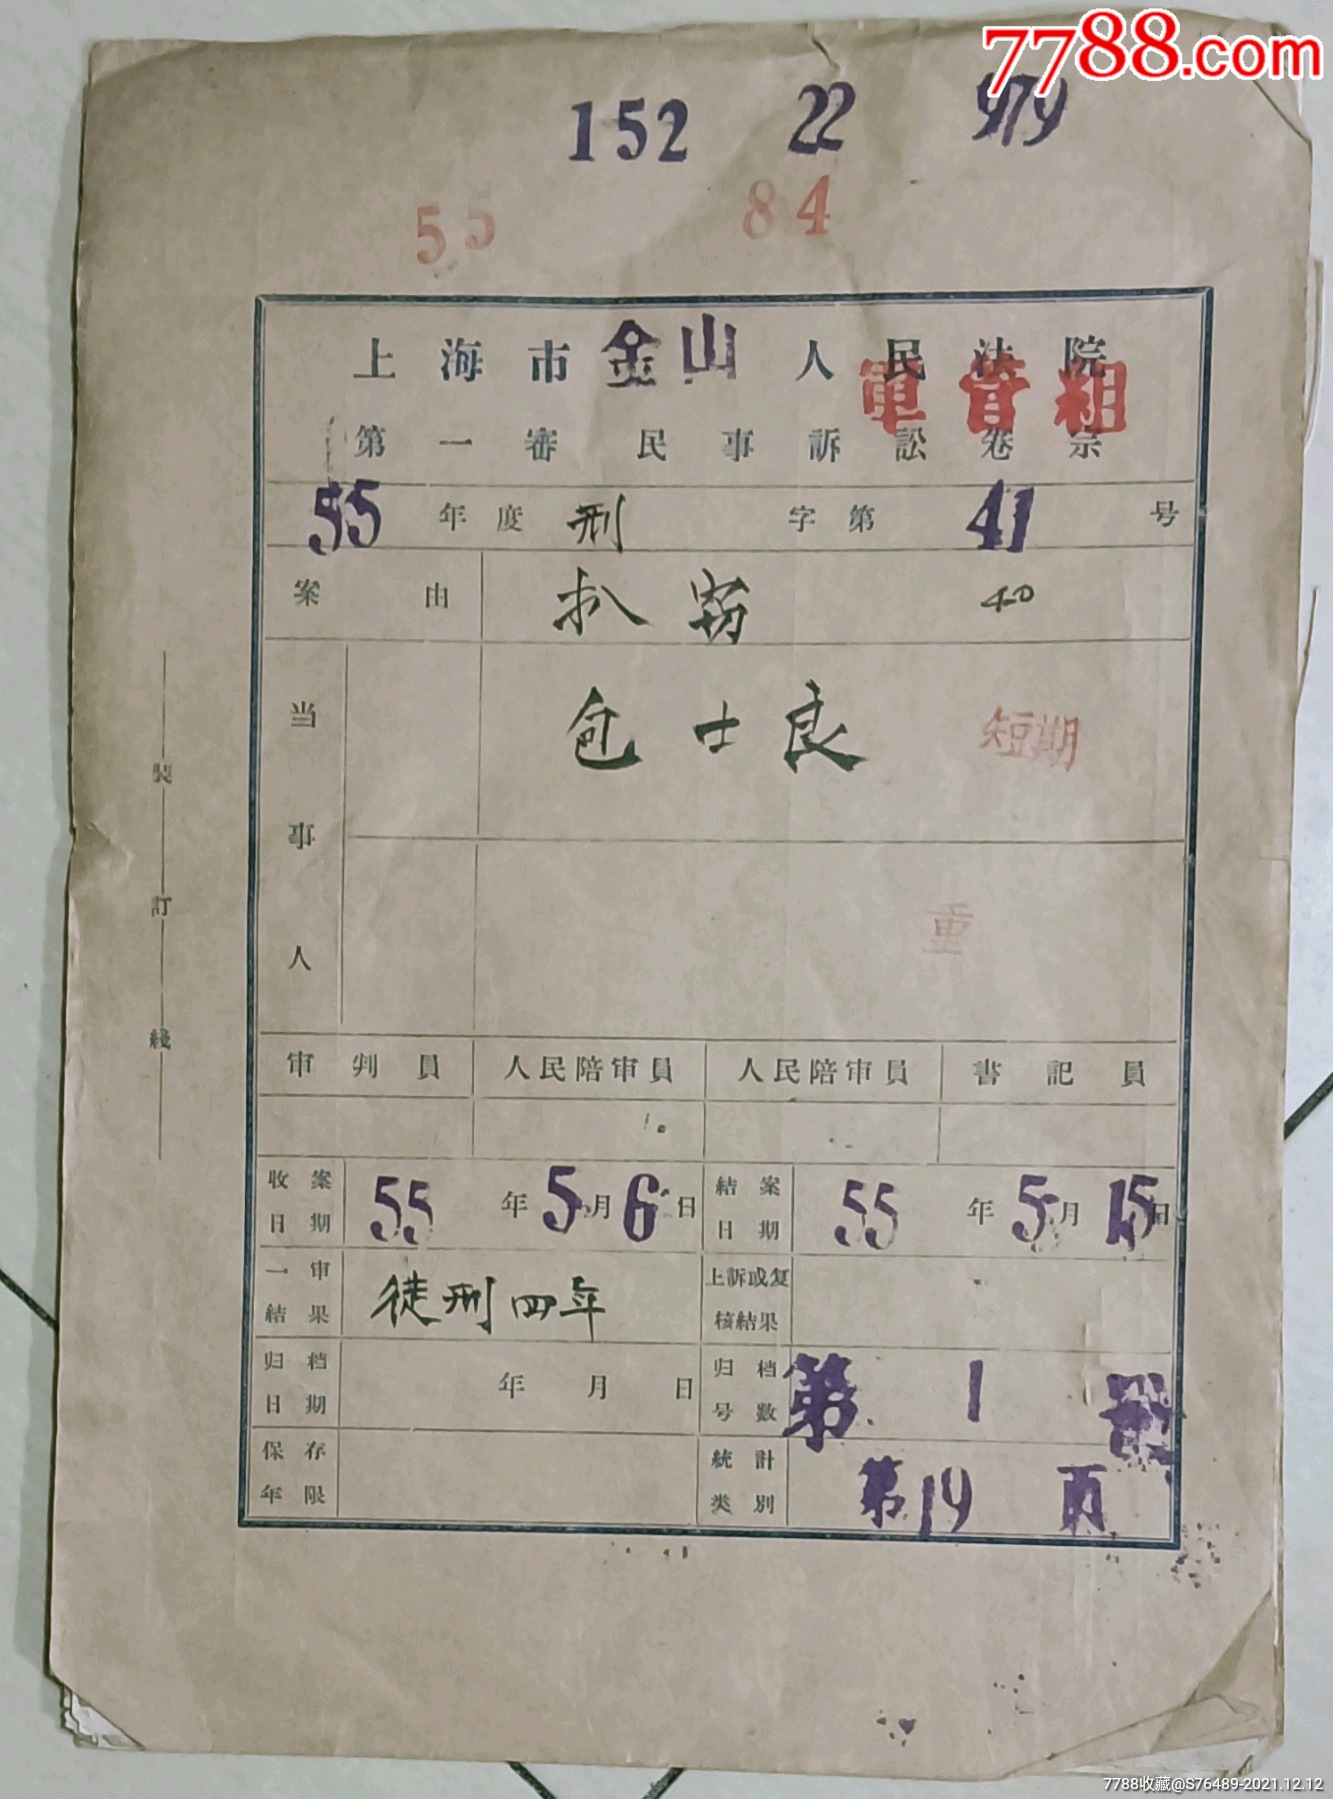 7788.com
152 22 979
55 84
上海市金山人民法院
軍管組
第一審民事訴訟卷宗
55年度刑字第41号
案由 扒窃 40
当事人 包士良 短期
重
裝訂綫
审判員 人民陪审員 人民陪审員 書記員
收案日期 55年5月6日 結案日期 55年5月15日
一审結果 徒刑四年 上訴或复核結果
归档日期 年月日 归档号数 第1
保存年限 統計类別 第19頁
7788收藏@S76489-2021.12.12